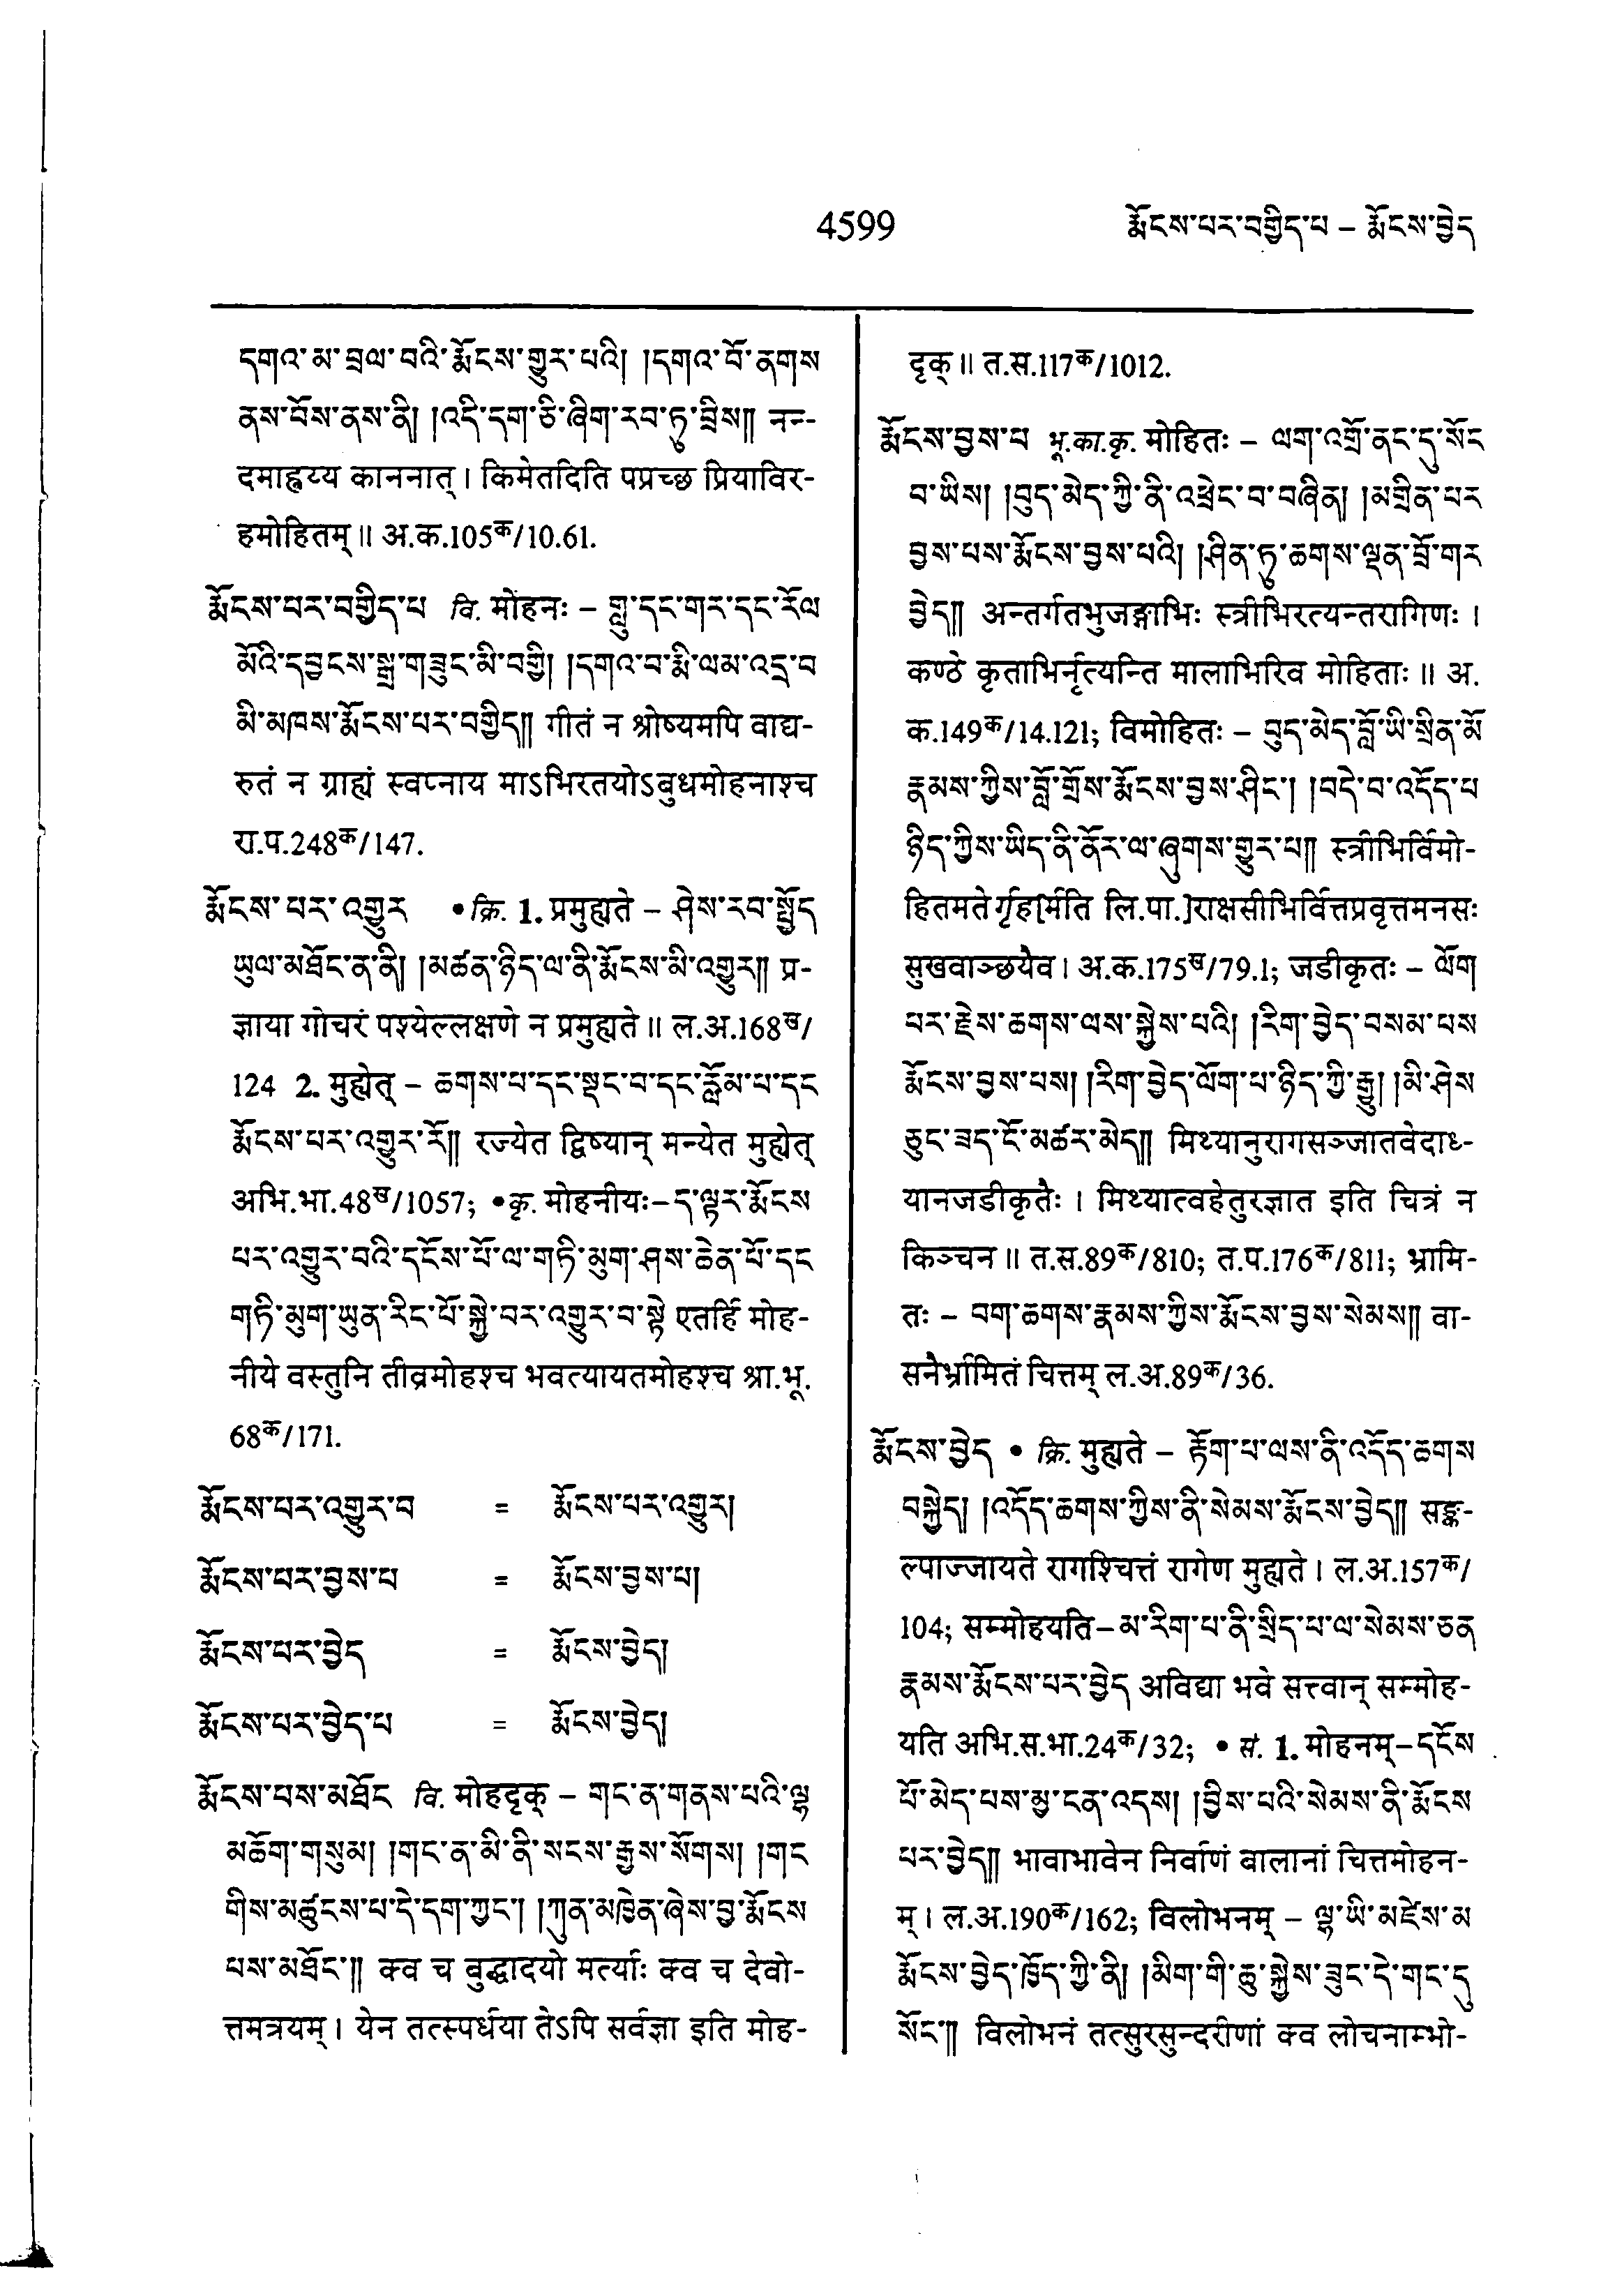 4599
རྨོངས་པར་བགྱིད་པ – རྨོངས་བྱེད
དགའ་མ་བྲལ་བའི་རྨོངས་གྱུར་པའི། །དགའ་བོ་ནགས
ནས་བོས་ནས་ནི། །འདི་དག་ཅི་ཞིག་རབ་ཏུ་བྲིས།། नन्-
दमाहूय्य काननात् । किमेतदिति पप्रच्छ प्रियाविर-
हमोहितम् ॥ अ.क.105क/10.61.
རྨོངས་པར་བགྱིད་པ वि. मोहनः – གླུ་དང་གར་དང་རོལ
མོའི་དབྱངས་སྒྲ་གཟུང་མི་བགྱི། །དགའ་བ་རྨི་ལམ་འདྲ་བ
མི་མཁས་རྨོངས་པར་བགྱིད།། गीतं न श्रोष्यमपि वाद्य-
रुतं न ग्राह्यं स्वप्नाय माऽभिरतयोऽबुधमोहनाश्च
रा.प.248क/147.
རྨོངས་པར་འགྱུར • क्रि. 1. प्रमुह्यते – ཤེས་རབ་སྤྱོད
ཡུལ་མཐོང་ན་ནི། །མཚན་ཉིད་ལ་ནི་རྨོངས་མི་འགྱུར།། प्र-
ज्ञाया गोचरं पश्येल्लक्षणे न प्रमुह्यते ॥ ल.अ.168ख/
124 2. मुह्येत् – ཆགས་པ་དང་སྡང་བ་དང་རློམ་པ་དང
རྨོངས་པར་འགྱུར་རོ།། रज्येत द्विष्यान् मन्येत मुह्येत्
अभि.भा.48ख/1057; • कृ. मोहनीयः – ད་ལྟར་རྨོངས
པར་འགྱུར་བའི་དངོས་པོ་ལ་གཏི་མུག་ཤས་ཆེན་པོ་དང
གཏི་མུག་ཡུན་རིང་པོ་སྐྱེ་བར་འགྱུར་བ་སྟེ एतर्हि मोह-
नीये वस्तुनि तीव्रमोहश्च भवत्यायतमोहश्च श्रा.भू.
68क/171.
རྨོངས་པར་འགྱུར་བ = རྨོངས་པར་འགྱུར།
རྨོངས་པར་བྱས་པ = རྨོངས་བྱས་པ།
རྨོངས་པར་བྱེད = རྨོངས་བྱེད།
རྨོངས་པར་བྱེད་པ = རྨོངས་བྱེད།
རྨོངས་པས་མཐོང वि. मोहदृक् – གང་ན་གནས་པའི་ལྷ
མཆོག་གསུམ། །གང་ན་མི་ནི་སངས་རྒྱས་སོགས། །གང
གིས་མཚུངས་པ་དེ་དག་ཀྱང་། །ཀུན་མཁྱེན་ཞེས་བྱ་རྨོངས
པས་མཐོང་།། क्व च बुद्धादयो मर्त्याः क्व च देवो-
त्तमत्रयम् । येन तत्स्पर्धया तेऽपि सर्वज्ञा इति मोह-
दृक् ॥ त.स.117क/1012.
རྨོངས་བྱས་པ भू.का.कृ. मोहितः – ལག་འགྲོ་ནང་དུ་སོང
བ་ཡིས། །བུད་མེད་ཀྱི་ནི་འཕྲེང་བ་བཞིན། །མགྲིན་པར
བྱས་པས་རྨོངས་བྱས་པའི། །ཤིན་ཏུ་ཆགས་ལྡན་བྲོ་གར
བྱེད།། अन्तर्गतभुजङ्गाभिः स्त्रीभिरत्यन्तरागिणः ।
कण्ठे कृताभिर्नृत्यन्ति मालाभिरिव मोहिताः ॥ अ.
क.149क/14.121; विमोहितः – བུད་མེད་བློ་ཡི་སྲིན་མོ
རྣམས་ཀྱིས་བློ་གྲོས་རྨོངས་བྱས་ཤིང་། །བདེ་བ་འདོད་པ
ཉིད་ཀྱིས་ཡིད་ནི་ནོར་ལ་ཞུགས་གྱུར་པ།། स्त्रीभिर्विमो-
हितमते र्गृह[र्मति लि.पा.]राक्षसीभिर्वित्तप्रवृत्तमनसः
सुखवाञ्छयैव । अ.क.175ख/79.1; जडीकृतः – ལོག
པར་རྗེས་ཆགས་ལས་སྐྱེས་པའི། །རིག་བྱེད་བསམ་པས
རྨོངས་བྱས་པས། །རིག་བྱེད་ལོག་པ་ཉིད་ཀྱི་རྒྱུ། །མི་ཤེས
ཅུང་ཟད་ངོ་མཚར་མེད།། मिथ्यानुरागसञ्जातवेदाध्-
यानजडीकृतैः । मिथ्यात्वहेतुरज्ञात इति चित्रं न
किञ्चन ॥ त.स.89क/810; त.प.176क/811; भ्रामि-
तः – བག་ཆགས་རྣམས་ཀྱིས་རྨོངས་བྱས་སེམས།། वा-
सनैर्भ्रामितं चित्तम् ल.अ.89क/36.
རྨོངས་བྱེད • क्रि. मुह्यते – རྟོག་པ་ལས་ནི་འདོད་ཆགས
བསྐྱེད། །འདོད་ཆགས་ཀྱིས་ནི་སེམས་རྨོངས་བྱེད།། सङ्क-
ल्पाज्जायते रागश्चित्तं रागेण मुह्यते । ल.अ.157क/
104; सम्मोहयति – མ་རིག་པ་ནི་སྲིད་པ་ལ་སེམས་ཅན
རྣམས་རྨོངས་པར་བྱེད अविद्या भवे सत्त्वान् सम्मोह-
यति अभि.स.भा.24क/32; • सं. 1. मोहनम् – དངོས
པོ་མེད་པས་མྱ་ངན་འདས། །བྱིས་པའི་སེམས་ནི་རྨོངས
པར་བྱེད།། भावाभावेन निर्वाणं बालानां चित्तमोहन-
म् । ल.अ.190क/162; विलोभनम् – ལྷ་ཡི་མཛེས་མ
རྨོངས་བྱེད་ཁྱོད་ཀྱི་ནི། །མིག་གི་ཆུ་སྐྱེས་ཟུང་དེ་གང་དུ
སོང་།། विलोभनं तत्सुरसुन्दरीणां क्व लोचनाम्भो-